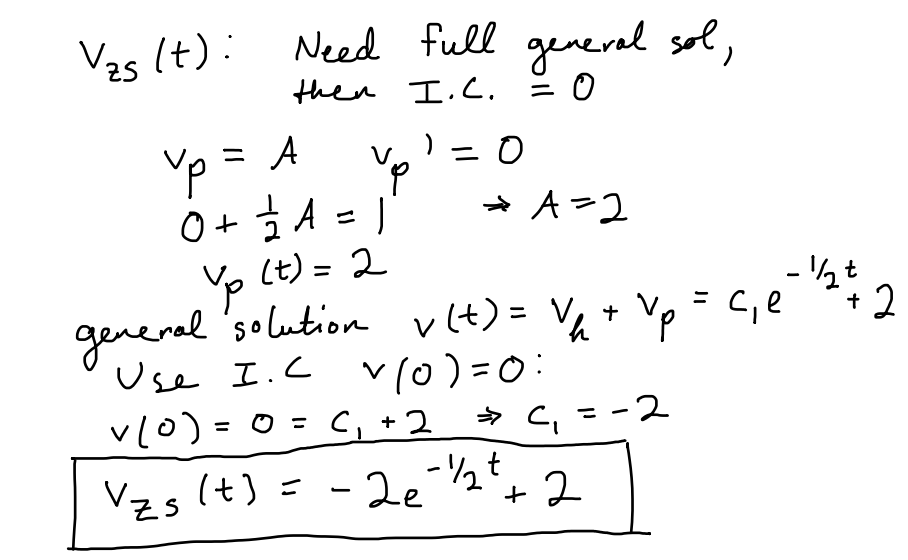 V_zs (t) : Need full general sol,
then I.C. = 0
v_p = A v_p' = 0
0 + 1/2 A = 1 ⇒ A = 2
v_p (t) = 2
general solution v(t) = V_h + v_p = c_1 e^{-1/2 t} + 2
Use I.C v(0) = 0 :
v(0) = 0 = c_1 + 2 ⇒ c_1 = -2
V_zs (t) = -2e^{-1/2 t} + 2